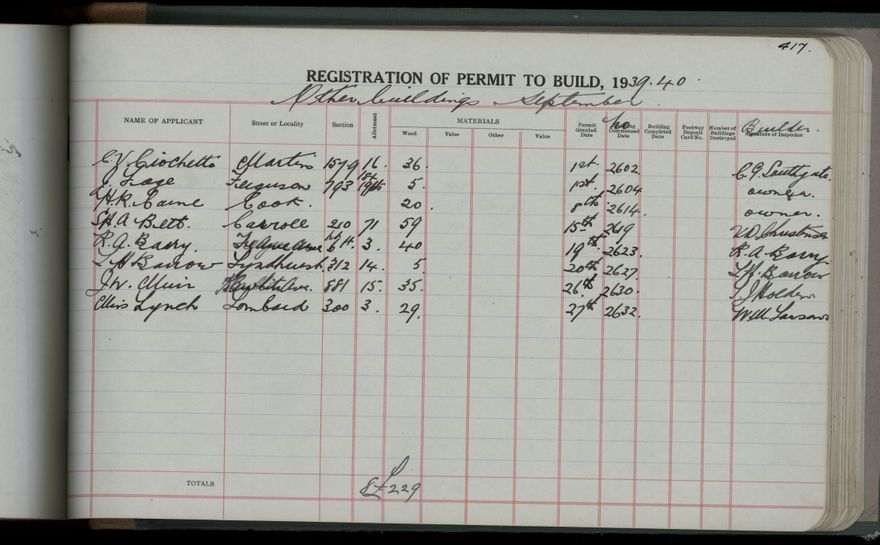 417.
REGISTRATION OF PERMIT TO BUILD, 1939.40
Other buildings September
NAME OF APPLICANT Street or Locality Section Allotment MATERIALS Wood Value Other Value Permit Granted Date No Commenced Date Building Completed Date Footway Deposit Card No. Number of Buildings Destroyed Builder. Signature of Inspector
C.V. Ciochetto Martin 1579 16. 36. 1st. 2602. C.G. Southgate
Ferguson 793 5. 2604 owner
H.R. Caine Cook. 20. 8th 2614. owner.
H.A. Bett. Carroll 210 71 59 15th 2619
R.A. Barry. 3. 40 19th 2623. R.A. Barry
L H Barrow Lyndhurst 312 14. 5. 20th 2627 L H Barrow
J.W. Muir 881 15. 35. 26th 2630. J Holden
Miss Lynch Lombard 300 3. 29. 27th 2632. W.M. Lawson
TOTALS 8 £229